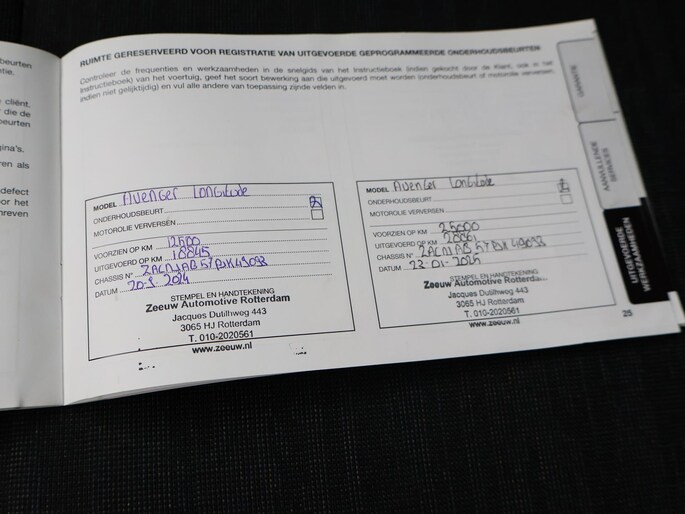 beurten
tie.
cliënt.
die de
beurten
gina's.
en als
defect
or het
hreven
RUIMTE GERESERVEERD VOOR REGISTRATIE VAN UITGEVOERDE GEPROGRAMMEERDE ONDERHOUDSBEURTEN
Controleer de frequenties en werkzaamheden in de snelgids van het Instructieboek (indien gekocht door de Klant, ook in het
Instructieboek) van het voertuig, geef het soort bewerking aan die uitgevoerd moet worden (onderhoudsbeurt of motorolie verversen,
indien niet gelijktijdig) en vul alle andere van toepassing zijnde velden in.
MODEL Avenger Longitude
ONDERHOUDSBEURT
MOTOROLIE VERVERSEN
VOORZIEN OP KM 12500
UITGEVOERD OP KM 10045
CHASSIS N°
DATUM 20-8-2024
STEMPEL EN HANDTEKENING
Zeeuw Automotive Rotterdam
Jacques Dutilhweg 443
3065 HJ Rotterdam
T. 010-2020561
www.zeeuw.nl
MODEL Avenger Longitude
ONDERHOUDSBEURT
MOTOROLIE VERVERSEN
VOORZIEN OP KM 25000
UITGEVOERD OP KM
CHASSIS N°
DATUM 23-01-2025
STEMPEL EN HANDTEKENING
Zeeuw Automotive Rotterdam
Jacques Dutilhweg 443
3065 HJ Rotterdam
T. 010-2020561
www.zeeuw.nl
GARANTIE
AANVULLENDE
SERVICES
UITGEVOERDE
WERKZAAMHEDEN
25